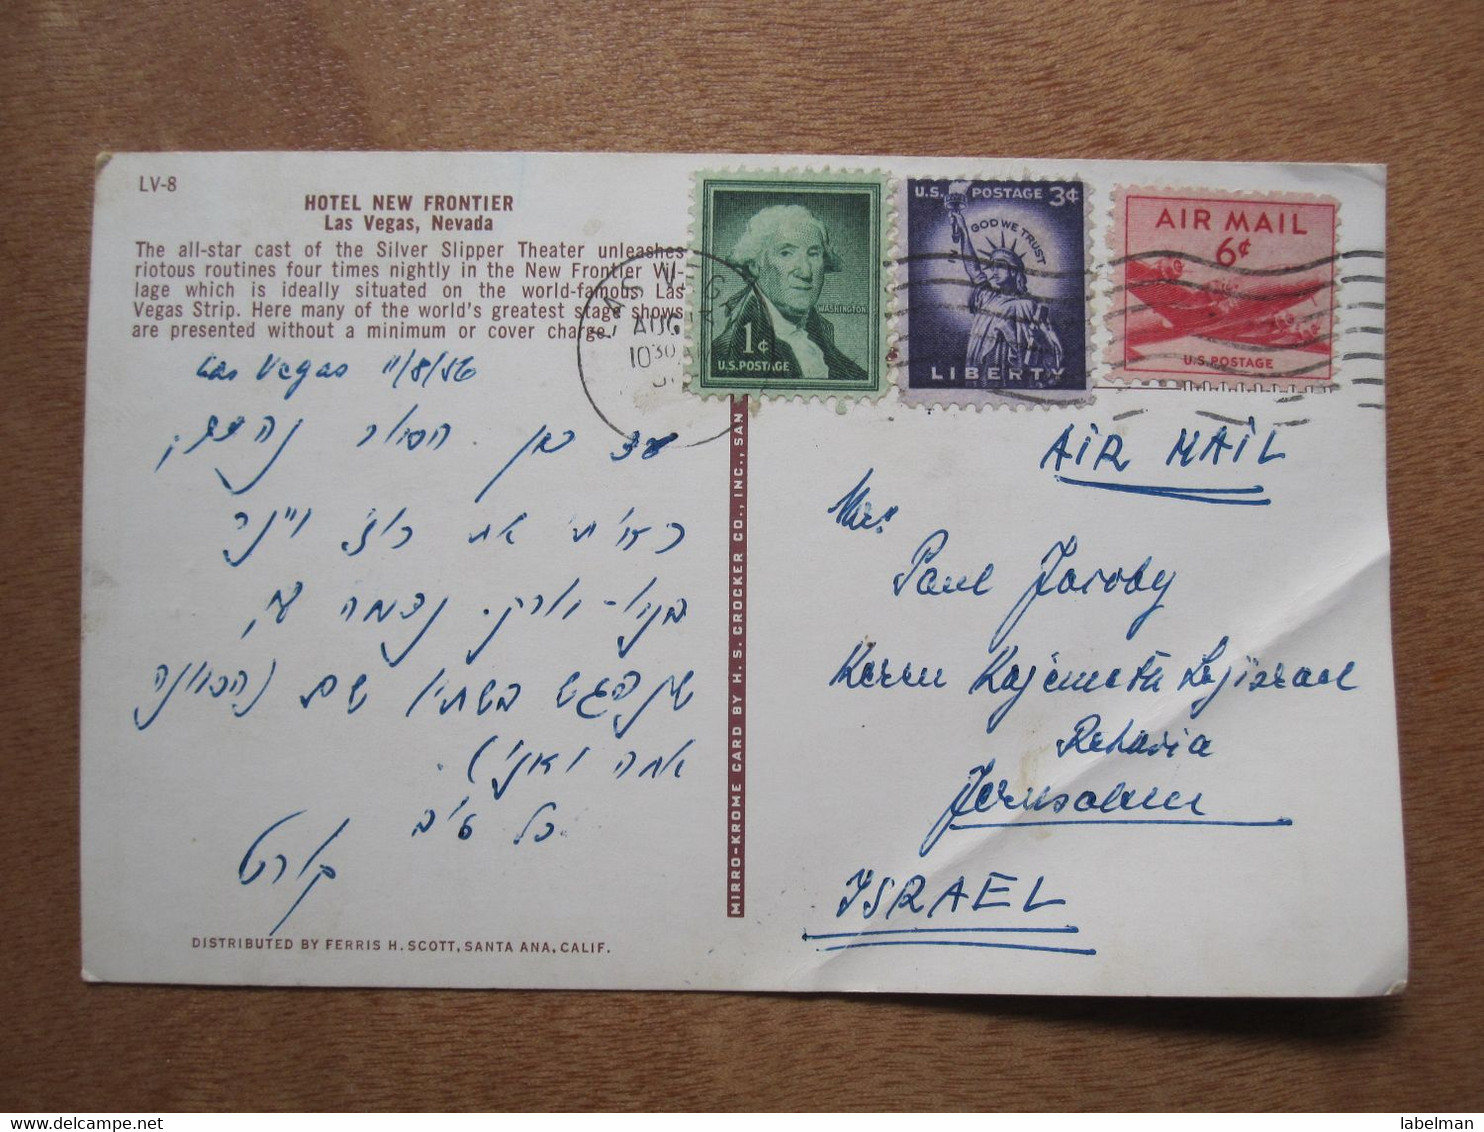 LV-8
HOTEL NEW FRONTIER
Las Vegas, Nevada
The all-star cast of the Silver Slipper Theater unleashes
riotous routines four times nightly in the New Frontier Vil-
lage which is ideally situated on the world-famous Las
Vegas Strip. Here many of the world's greatest stage shows
are presented without a minimum or cover charge.
Las Vegas 11/8/56
עד כאן הסיור נהדר,
ראיתי את
בניו-יורק.
שניפגש בשתיה שם
אתה ואני)
כל ט"ב
קורט
DISTRIBUTED BY FERRIS H. SCOTT, SANTA ANA, CALIF.
MIRRO-KROME CARD BY H. S. CROCKER CO., INC., SAN
AUG
10 30
1¢
WASHINGTON
U.S. POSTAGE
U.S. POSTAGE 3¢
GOD WE TRUST
LIBERTY
AIR MAIL
6¢
U.S. POSTAGE
AIR MAIL
Mr.
Paul Jacoby
Keren Kajemeth Lejisrael
Rehavia
Jerusalem
ISRAEL
labelman
www.delcampe.net